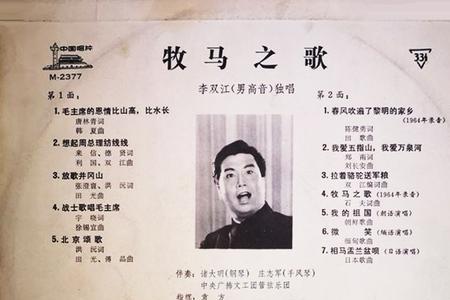 中国唱片
M-2377
牧马之歌
33⅓
李双江(男高音)独唱
第1面:
1.毛主席的恩情比山高,比水长
唐林青词
韩 夏曲
2.想起周总理纺线线
来 信、德 贤词
利 国、双 江曲
3.放歌井冈山
张澄寰、洪 沅词
田 光曲
4.战士歌唱毛主席
宇 晓词
徐锡宜曲
5.北京颂歌
洪 沅词
田 光、傅 晶曲
第2面:
1.春风吹遍了黎明的家乡
(1964年录音)
陈健勇词
田 歌曲
2.我爱五指山,我爱万泉河
郑 南词
刘长安曲
3.拉着骆驼送军粮
双 江编词曲
4.牧马之歌(1964年录音)
石 夫词曲
5.我的祖国(朝语演唱)
朝鲜歌曲
6.微 笑(缅语演唱)
缅甸歌曲
7.相马盂兰盆呗(日语演唱)
日本歌曲
伴奏:诸大明(钢琴) 庄志军(手风琴)
中央广播文工团管弦乐团
指挥:袁 方